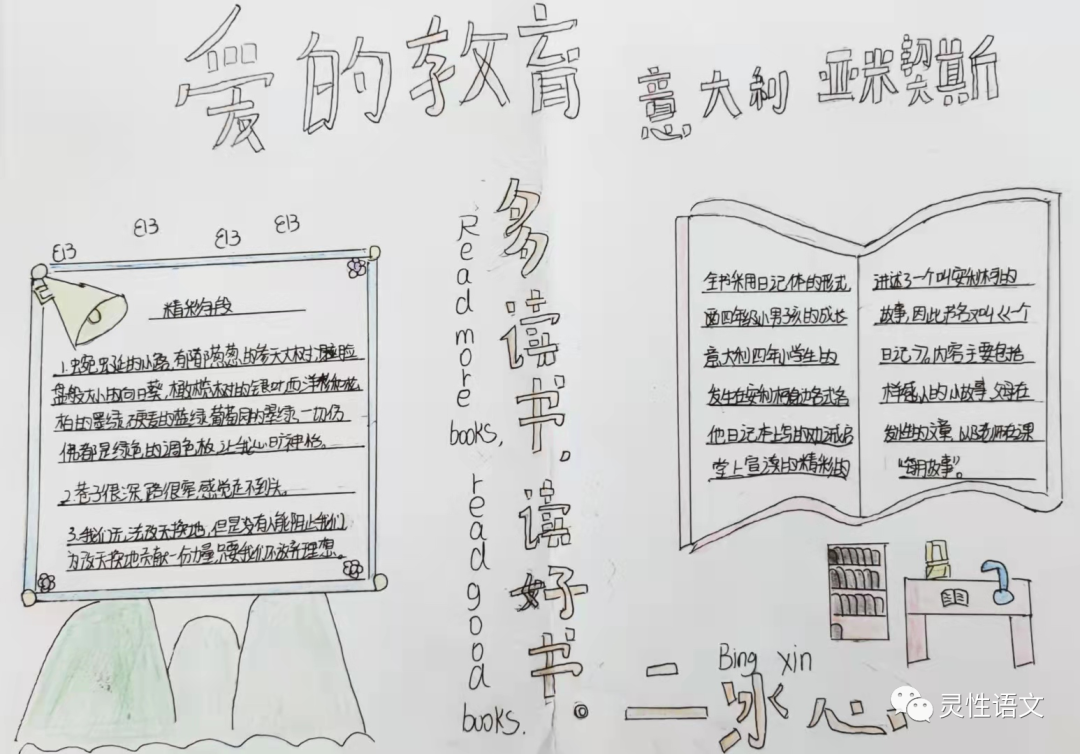 爱的教育
意大利 亚米契斯
精彩片段
1.蜿蜒的小路,有郁郁葱葱的参天大树,脸
盘般大小的向日葵,橄榄树的银叶,西洋杉和松
柏的墨绿,硬麦的蓝绿,葡萄园的翠绿,一切仿
佛都是绿色的调色板,让我心旷神怡。
2.巷子很深,路很窄,感觉走不到头。
3.我们无法改天换地,但是没有人能阻止我们
为改天换地贡献一份力量,只要我们不放弃理想。
Read more books, read good books.
多读书.读好书。
全书采用日记体的形式
四年级小男孩的成长
意大利四年小学生的
发生在安利柯身边各式各
他日记本上写的劝诫启
堂上宣读的精彩的
讲述了一个叫安利柯的
故事,因此书名又叫《一个
日记》。内容主要包括
样感人的小故事,父母在
发性的文章,以及老师在课
“每月故事”。
Bing xin
——冰心.
灵性语文